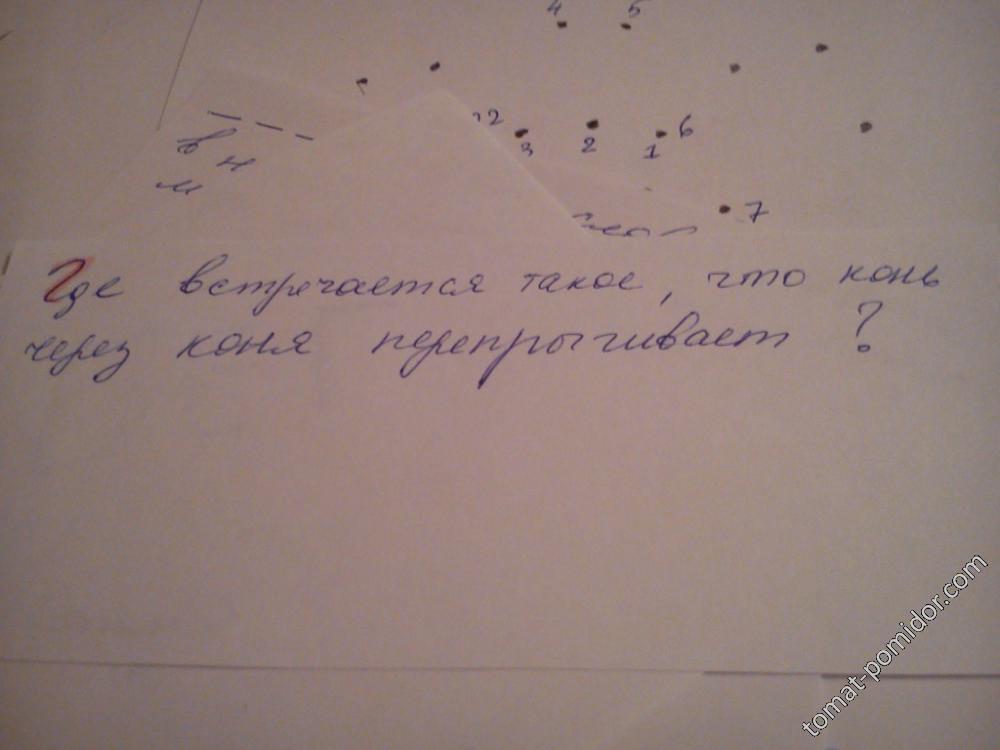 4 5
2 3 2 1 6
7
в н
м
Где встречается такое, что конь
через коня перепрыгивает ?
tomat-pomidor.com